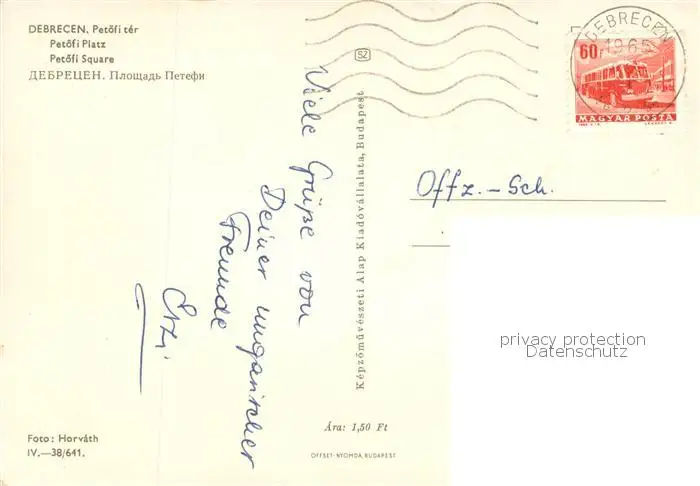 DEBRECEN, Petőfi tér
Petőfi Platz
Petőfi Square
ДЕБРЕЦЕН. Площадь Петефи
Viele Grüße von
Deiner ungarischer
Freunde
Foto: Horváth
IV.—38/641.
SZ
Képzőművészeti Alap Kiadóvállalata, Budapest
Ára: 1,50 Ft
OFFSET-NYOMDA, BUDAPEST
DEBRECEN
60f
MAGYAR POSTA
Offz. - Sch.
privacy protection
Datenschutz